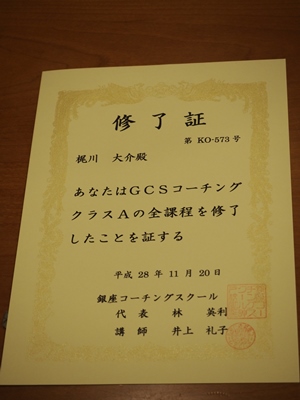 修了証
第 KO-573 号
梶川 大介殿
あなたはGCSコーチング
クラスAの全課程を修了
したことを証する
平成 28年 11月 20日
銀座コーチングスクール
代表 林 英利
講師 井上 礼子